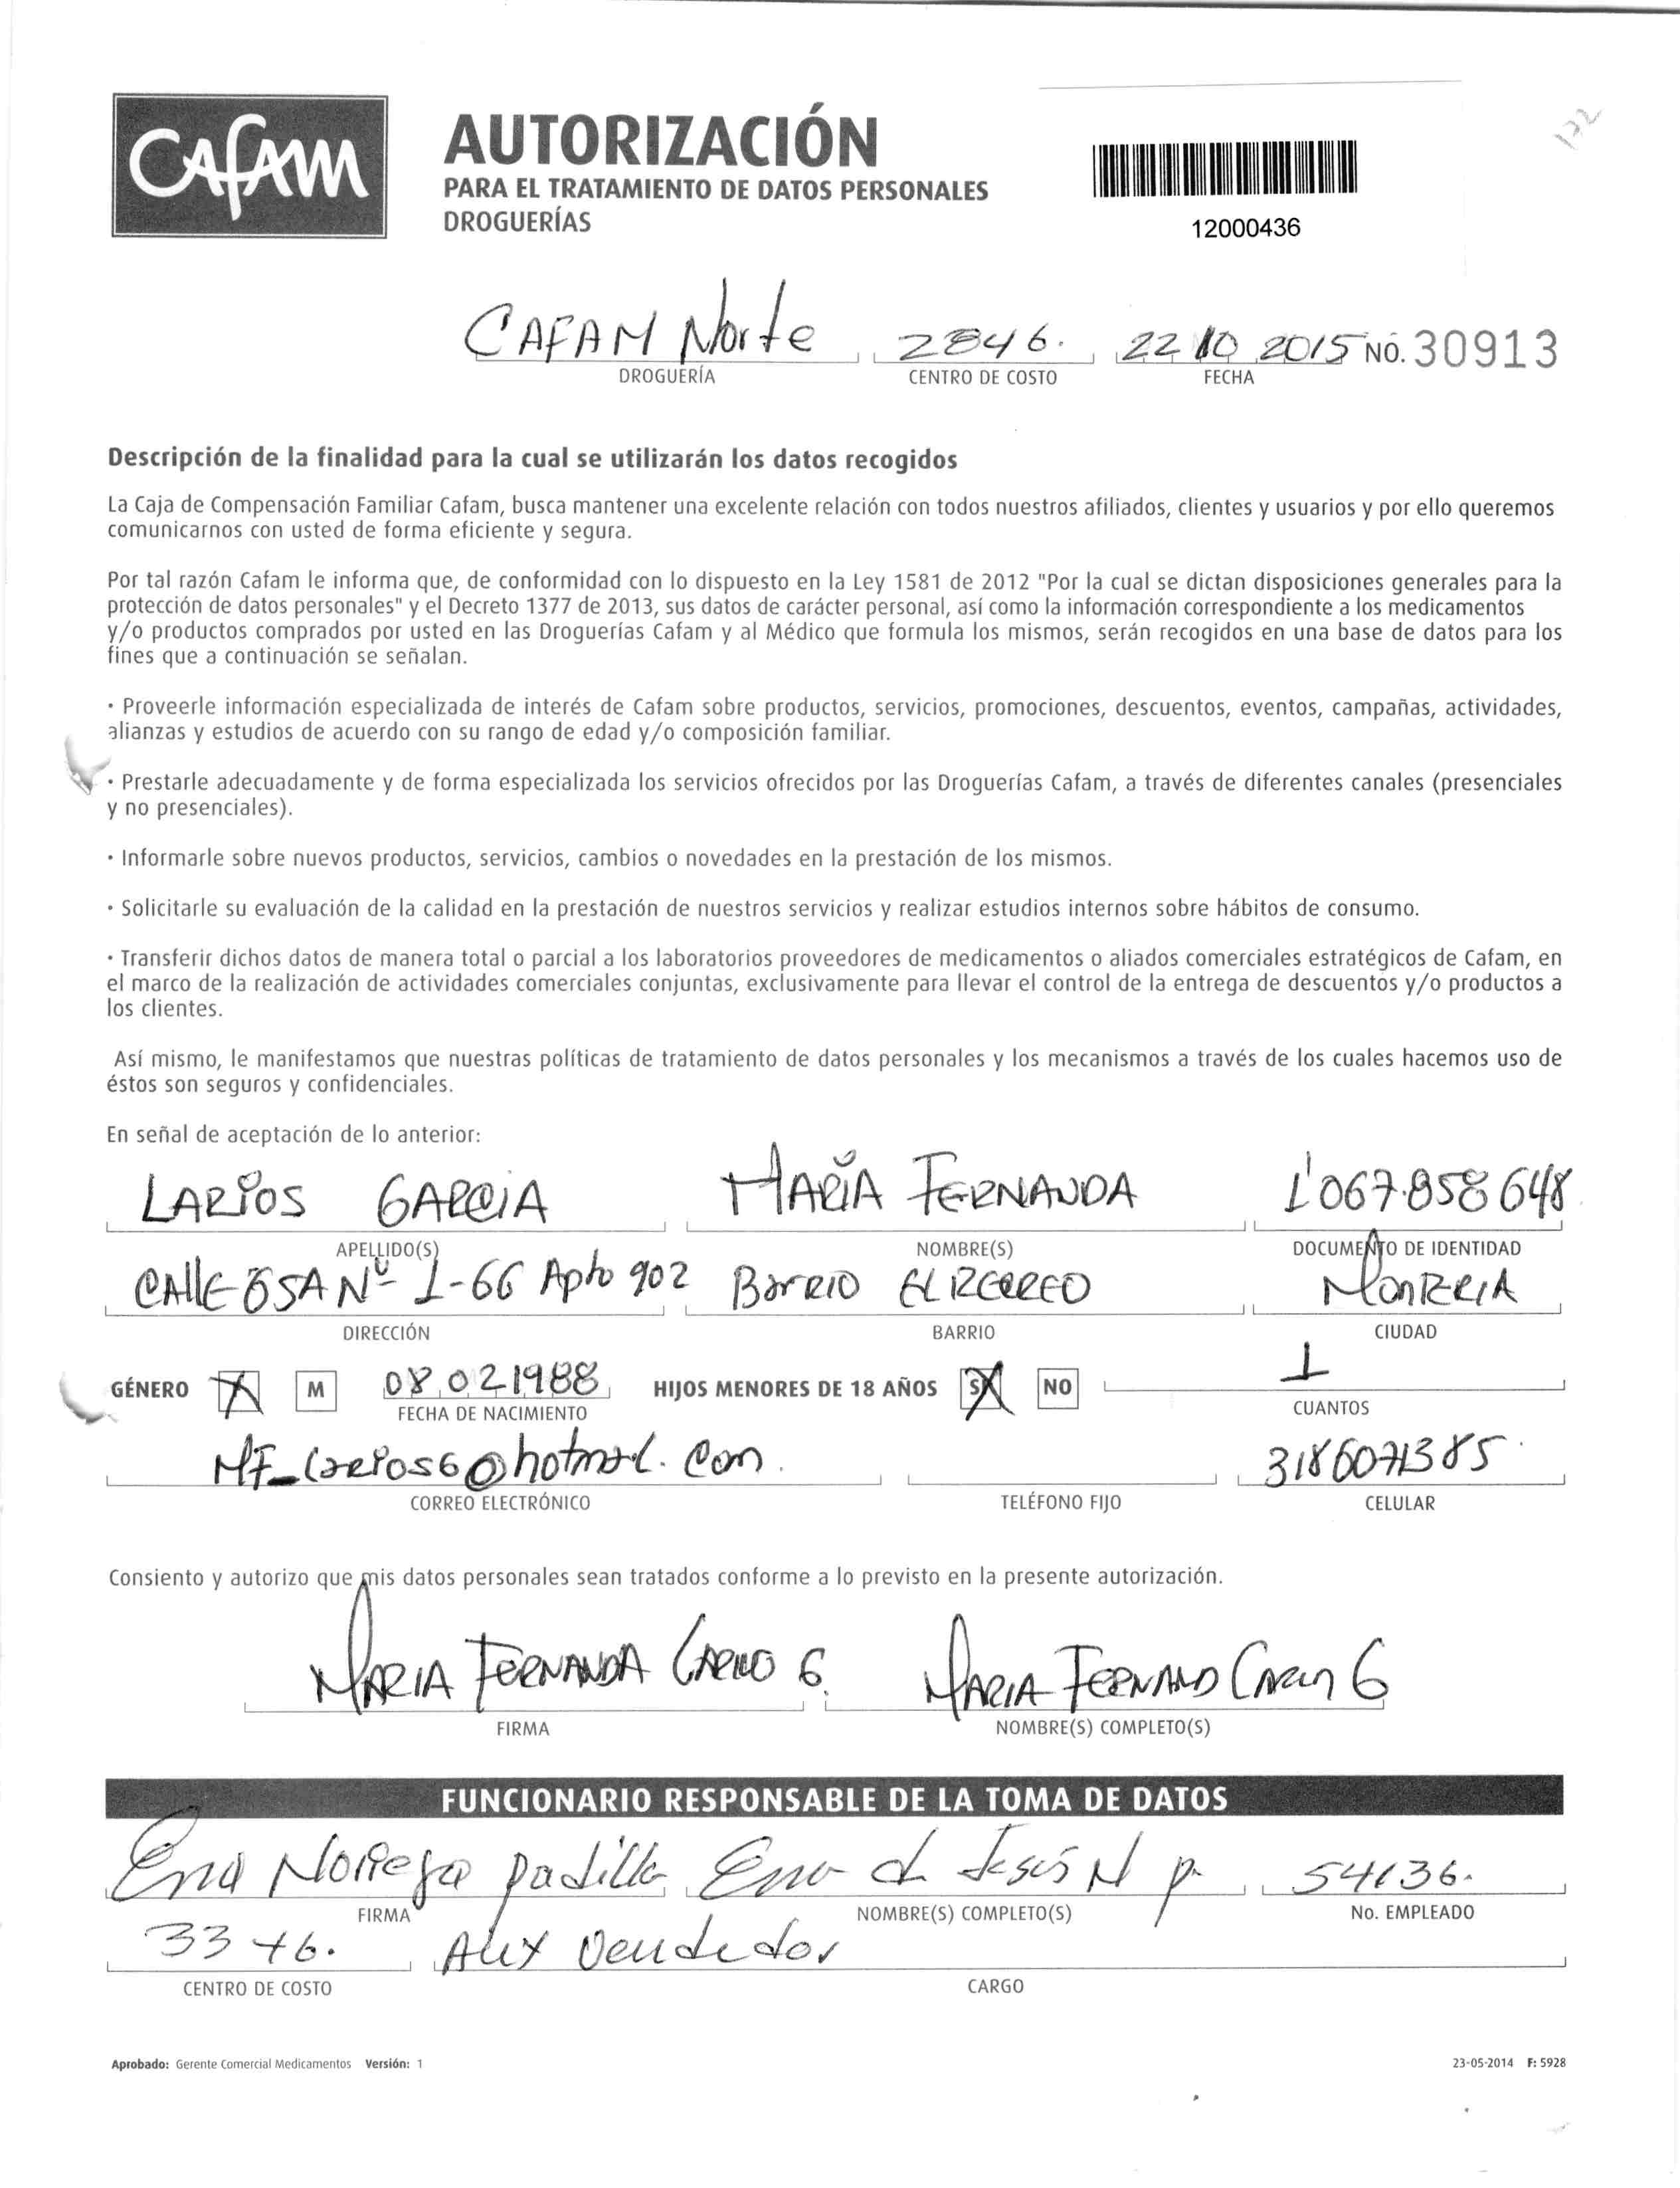 CAFAM
AUTORIZACIÓN
PARA EL TRATAMIENTO DE DATOS PERSONALES
DROGUERÍAS
12000436
172
CAFAM Norte 2846. 22 10 2015 NO. 30913
DROGUERÍA CENTRO DE COSTO FECHA
Descripción de la finalidad para la cual se utilizarán los datos recogidos
La Caja de Compensación Familiar Cafam, busca mantener una excelente relación con todos nuestros afiliados, clientes y usuarios y por ello queremos
comunicarnos con usted de forma eficiente y segura.
Por tal razón Cafam le informa que, de conformidad con lo dispuesto en la Ley 1581 de 2012 "Por la cual se dictan disposiciones generales para la
protección de datos personales" y el Decreto 1377 de 2013, sus datos de carácter personal, así como la información correspondiente a los medicamentos
y/o productos comprados por usted en las Droguerías Cafam y al Médico que formula los mismos, serán recogidos en una base de datos para los
fines que a continuación se señalan.
· Proveerle información especializada de interés de Cafam sobre productos, servicios, promociones, descuentos, eventos, campañas, actividades,
alianzas y estudios de acuerdo con su rango de edad y/o composición familiar.
· Prestarle adecuadamente y de forma especializada los servicios ofrecidos por las Droguerías Cafam, a través de diferentes canales (presenciales
y no presenciales).
· Informarle sobre nuevos productos, servicios, cambios o novedades en la prestación de los mismos.
· Solicitarle su evaluación de la calidad en la prestación de nuestros servicios y realizar estudios internos sobre hábitos de consumo.
· Transferir dichos datos de manera total o parcial a los laboratorios proveedores de medicamentos o aliados comerciales estratégicos de Cafam, en
el marco de la realización de actividades comerciales conjuntas, exclusivamente para llevar el control de la entrega de descuentos y/o productos a
los clientes.
Así mismo, le manifestamos que nuestras políticas de tratamiento de datos personales y los mecanismos a través de los cuales hacemos uso de
éstos son seguros y confidenciales.
En señal de aceptación de lo anterior:
LARIOS GARCIA MARIA FERNANDA 1'067.858648
APELLIDO(S) NOMBRE(S) DOCUMENTO DE IDENTIDAD
CALLE 65A Nº 1-66 Apto 902 Barrio EL RECREO MONTERIA
DIRECCIÓN BARRIO CIUDAD
GÉNERO X M 08 02 1988 HIJOS MENORES DE 18 AÑOS SI NO 1
FECHA DE NACIMIENTO CUANTOS
MF_Larios6@hotmail.com. 3186071385
CORREO ELECTRÓNICO TELÉFONO FIJO CELULAR
Consiento y autorizo que mis datos personales sean tratados conforme a lo previsto en la presente autorización.
MARIA FERNANDA LARIOS G. MARIA FERNAND LARIOS G
FIRMA NOMBRE(S) COMPLETO(S)
FUNCIONARIO RESPONSABLE DE LA TOMA DE DATOS
Ena Noriega padilla Ena de Jesús N p. 54136.
FIRMA NOMBRE(S) COMPLETO(S) No. EMPLEADO
3346. Aux Vendedor
CENTRO DE COSTO CARGO
Aprobado: Gerente Comercial Medicamentos Versión: 1 23-05-2014 F: 5928